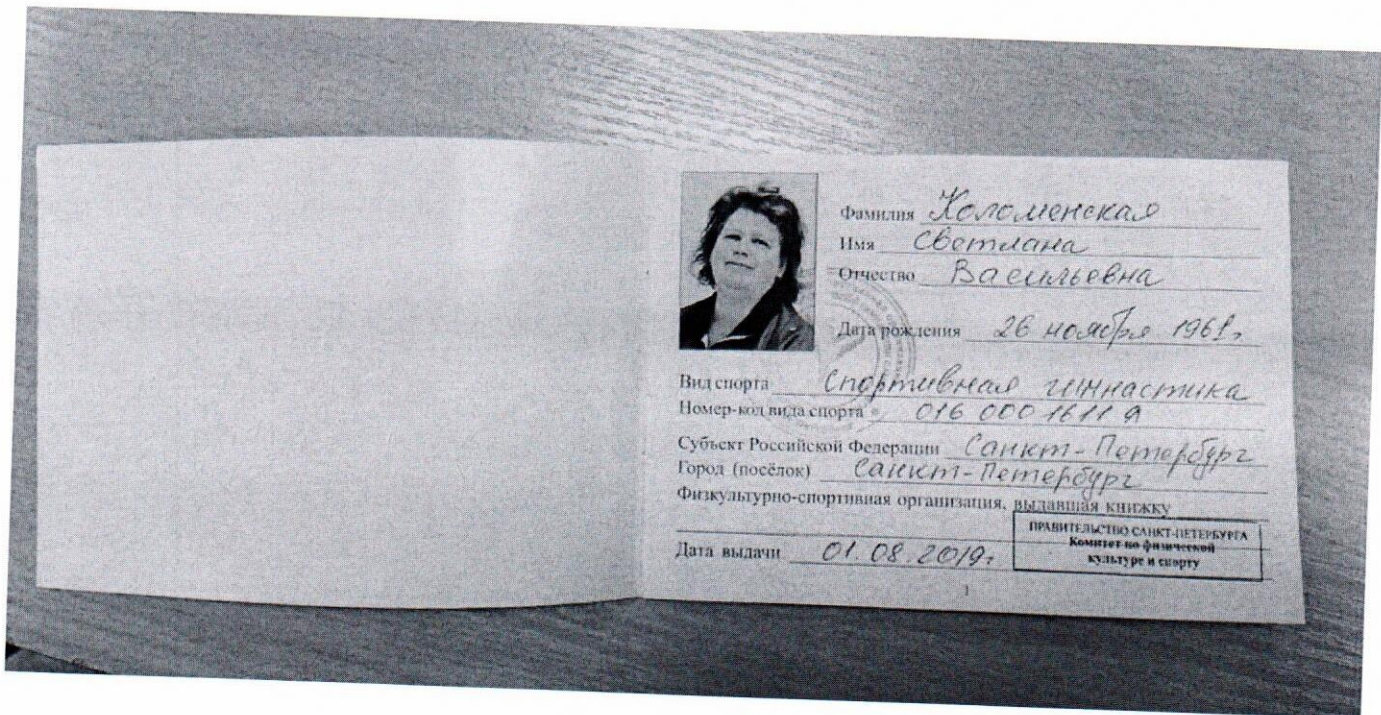 Фамилия Коломенская
Имя Светлана
Отчество Васильевна
Дата рождения 26 ноября 1961г
Вид спорта Спортивная гимнастика
Номер-код вида спорта 016 000 1611 Я
Субъект Российской Федерации Санкт-Петербург
Город (посёлок) Санкт-Петербург
Физкультурно-спортивная организация, выдавшая книжку
ПРАВИТЕЛЬСТВО САНКТ-ПЕТЕРБУРГА
Комитет по физической
культуре и спорту
Дата выдачи 01.08.2019г
1